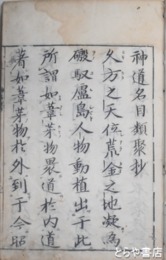 神道名目類聚抄
久方之天位荒金之地凝為
磤馭盧島人物動植出于此
所謂如葦芽物畏道於内道
著如葦芽物於外到于今昭